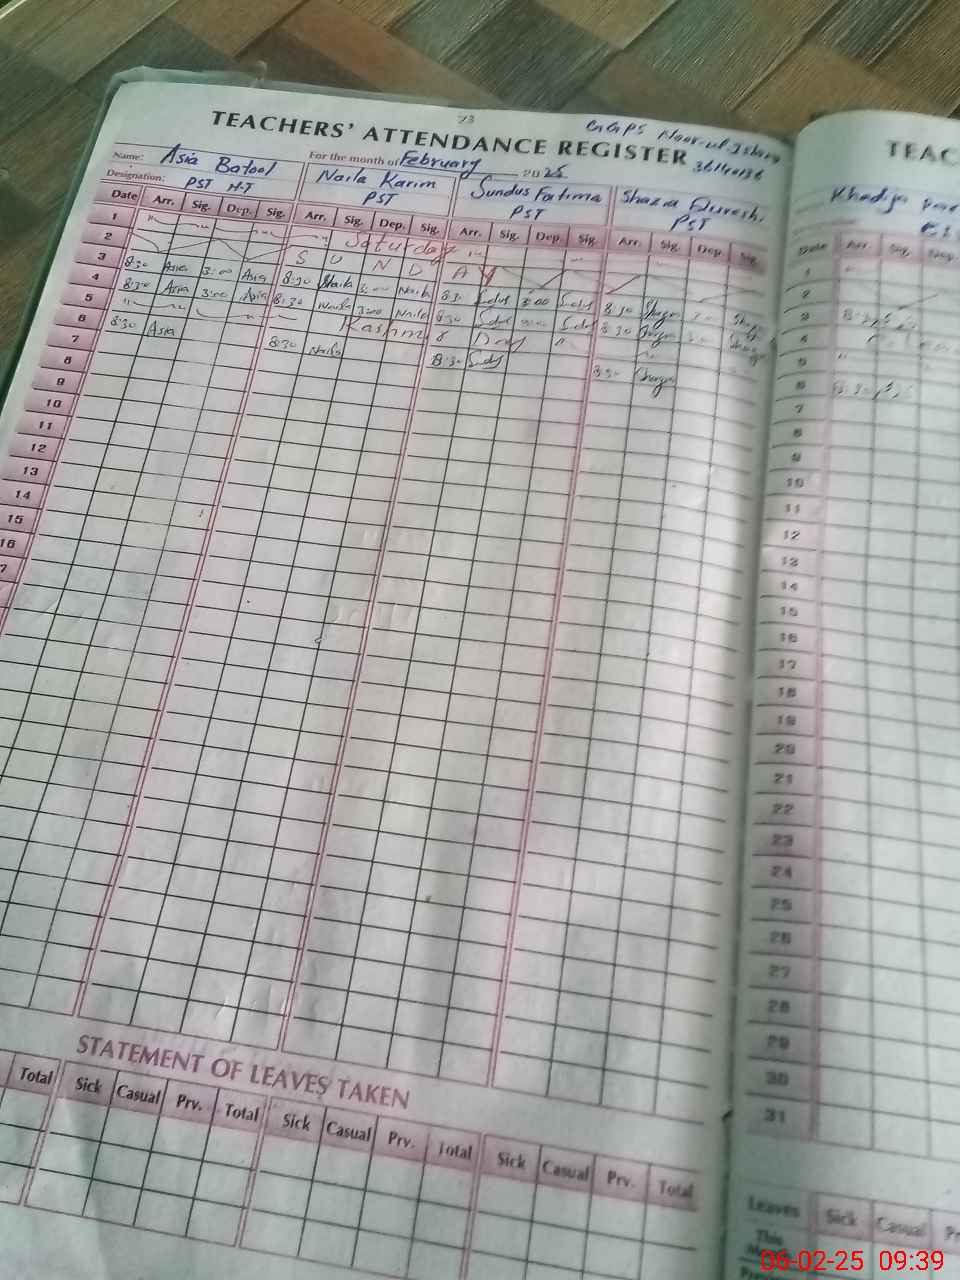 23
GGPS Noor-ul-
TEACHERS' ATTENDANCE REGISTER
Name: Asia Batool For the month of February 2025
Designation: PST H-T Naila Karim PST Sundus Fatima PST Shazia PST
Date Arr. Sig. Dep. Sig. Arr. Sig. Dep. Sig. Arr. Sig. Dep. Sig. Arr. Sig. Dep. Sig.
1 Saturday
2 S U N D A Y
3 8:30 Asia 3:00 Asia 8:30 Naila 3:00 Naila 8:30 3:00 8:30
4 8:30 Asia 3:00 Asia 8:30 Naila 3:00 Naila 8:30 8:30
5 Kashmir Day
6 8:30 Asia 8:30 Naila 8:30 8:30
7
8
9
10
11
12
13
14
15
16
7
STATEMENT OF LEAVES TAKEN
Total Sick Casual Prv. Total Sick Casual Prv. Total Sick Casual Prv. Total
TEAC
Khadija
Date Arr. Sig. Dep.
1
2
3 8:30
4
5
6 8:30
7
8
9
10
11
12
13
14
15
16
17
18
19
20
21
22
23
24
25
26
27
28
29
30
31
Leaves Sick Casual Pr
This
06-02-25 09:39